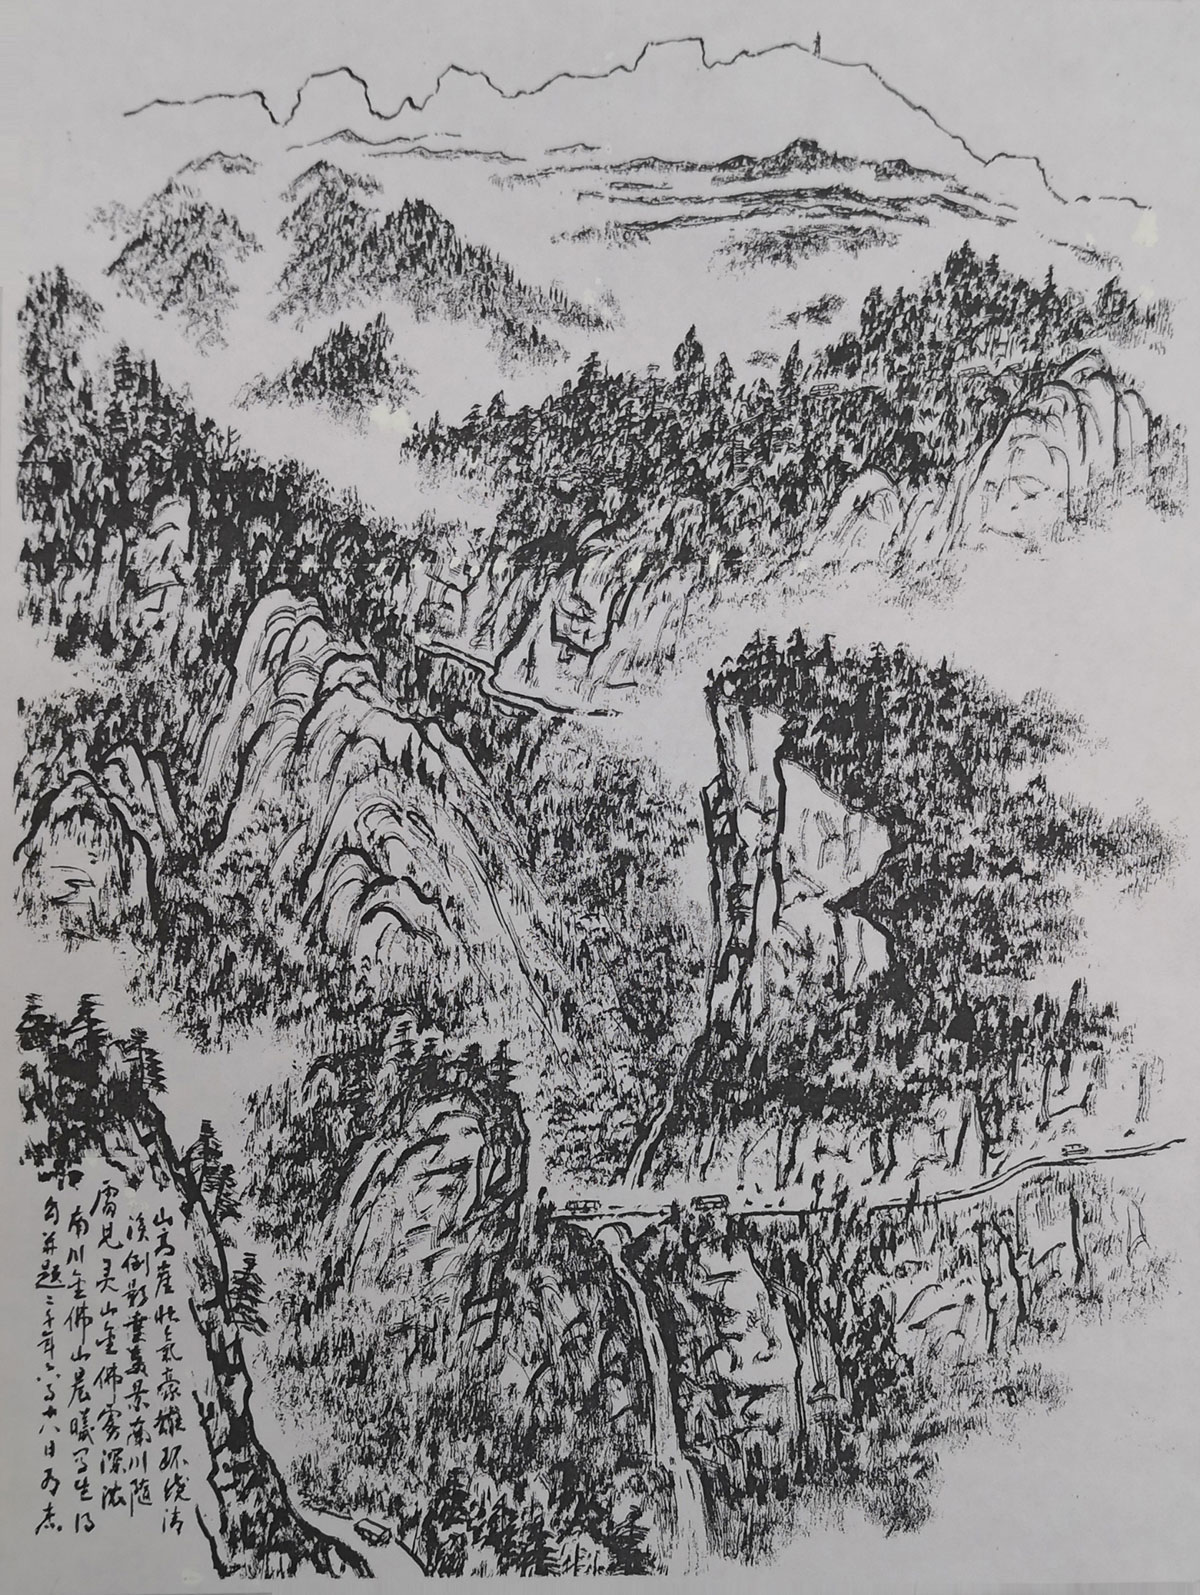 山高崖壮气豪雄环绕清
溪倒影重美景南川随
處见灵山金佛雾深浓
南川金佛山晨曦写生得
句并题二千年六月十八日为志